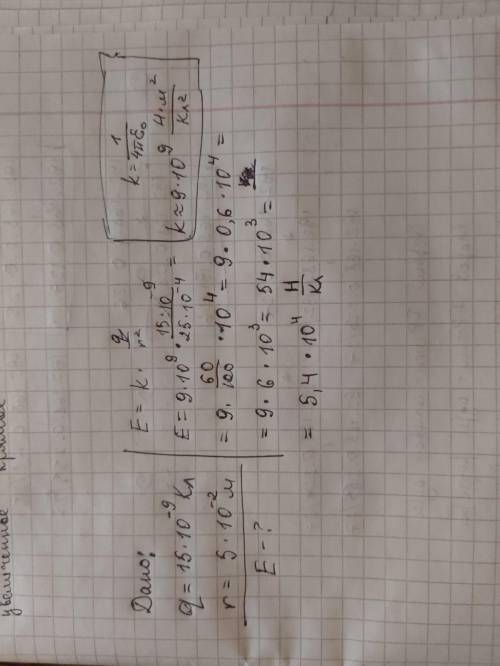 увеличенное
Дано:
q = 15·10⁻⁹ Кл
r = 5·10⁻² м
E - ?
E = k · q/r²
E = 9·10⁹ · 15·10⁻⁹/25·10⁻⁴ =
= 9 · 60/100 · 10⁴ = 9 · 0,6 · 10⁴ =
= 9 · 6 · 10³ = 54 · 10³ =
= 5,4 · 10⁴ Н/Кл
k = 1/4πε₀
k ≈ 9·10⁹ Н·м²/Кл²